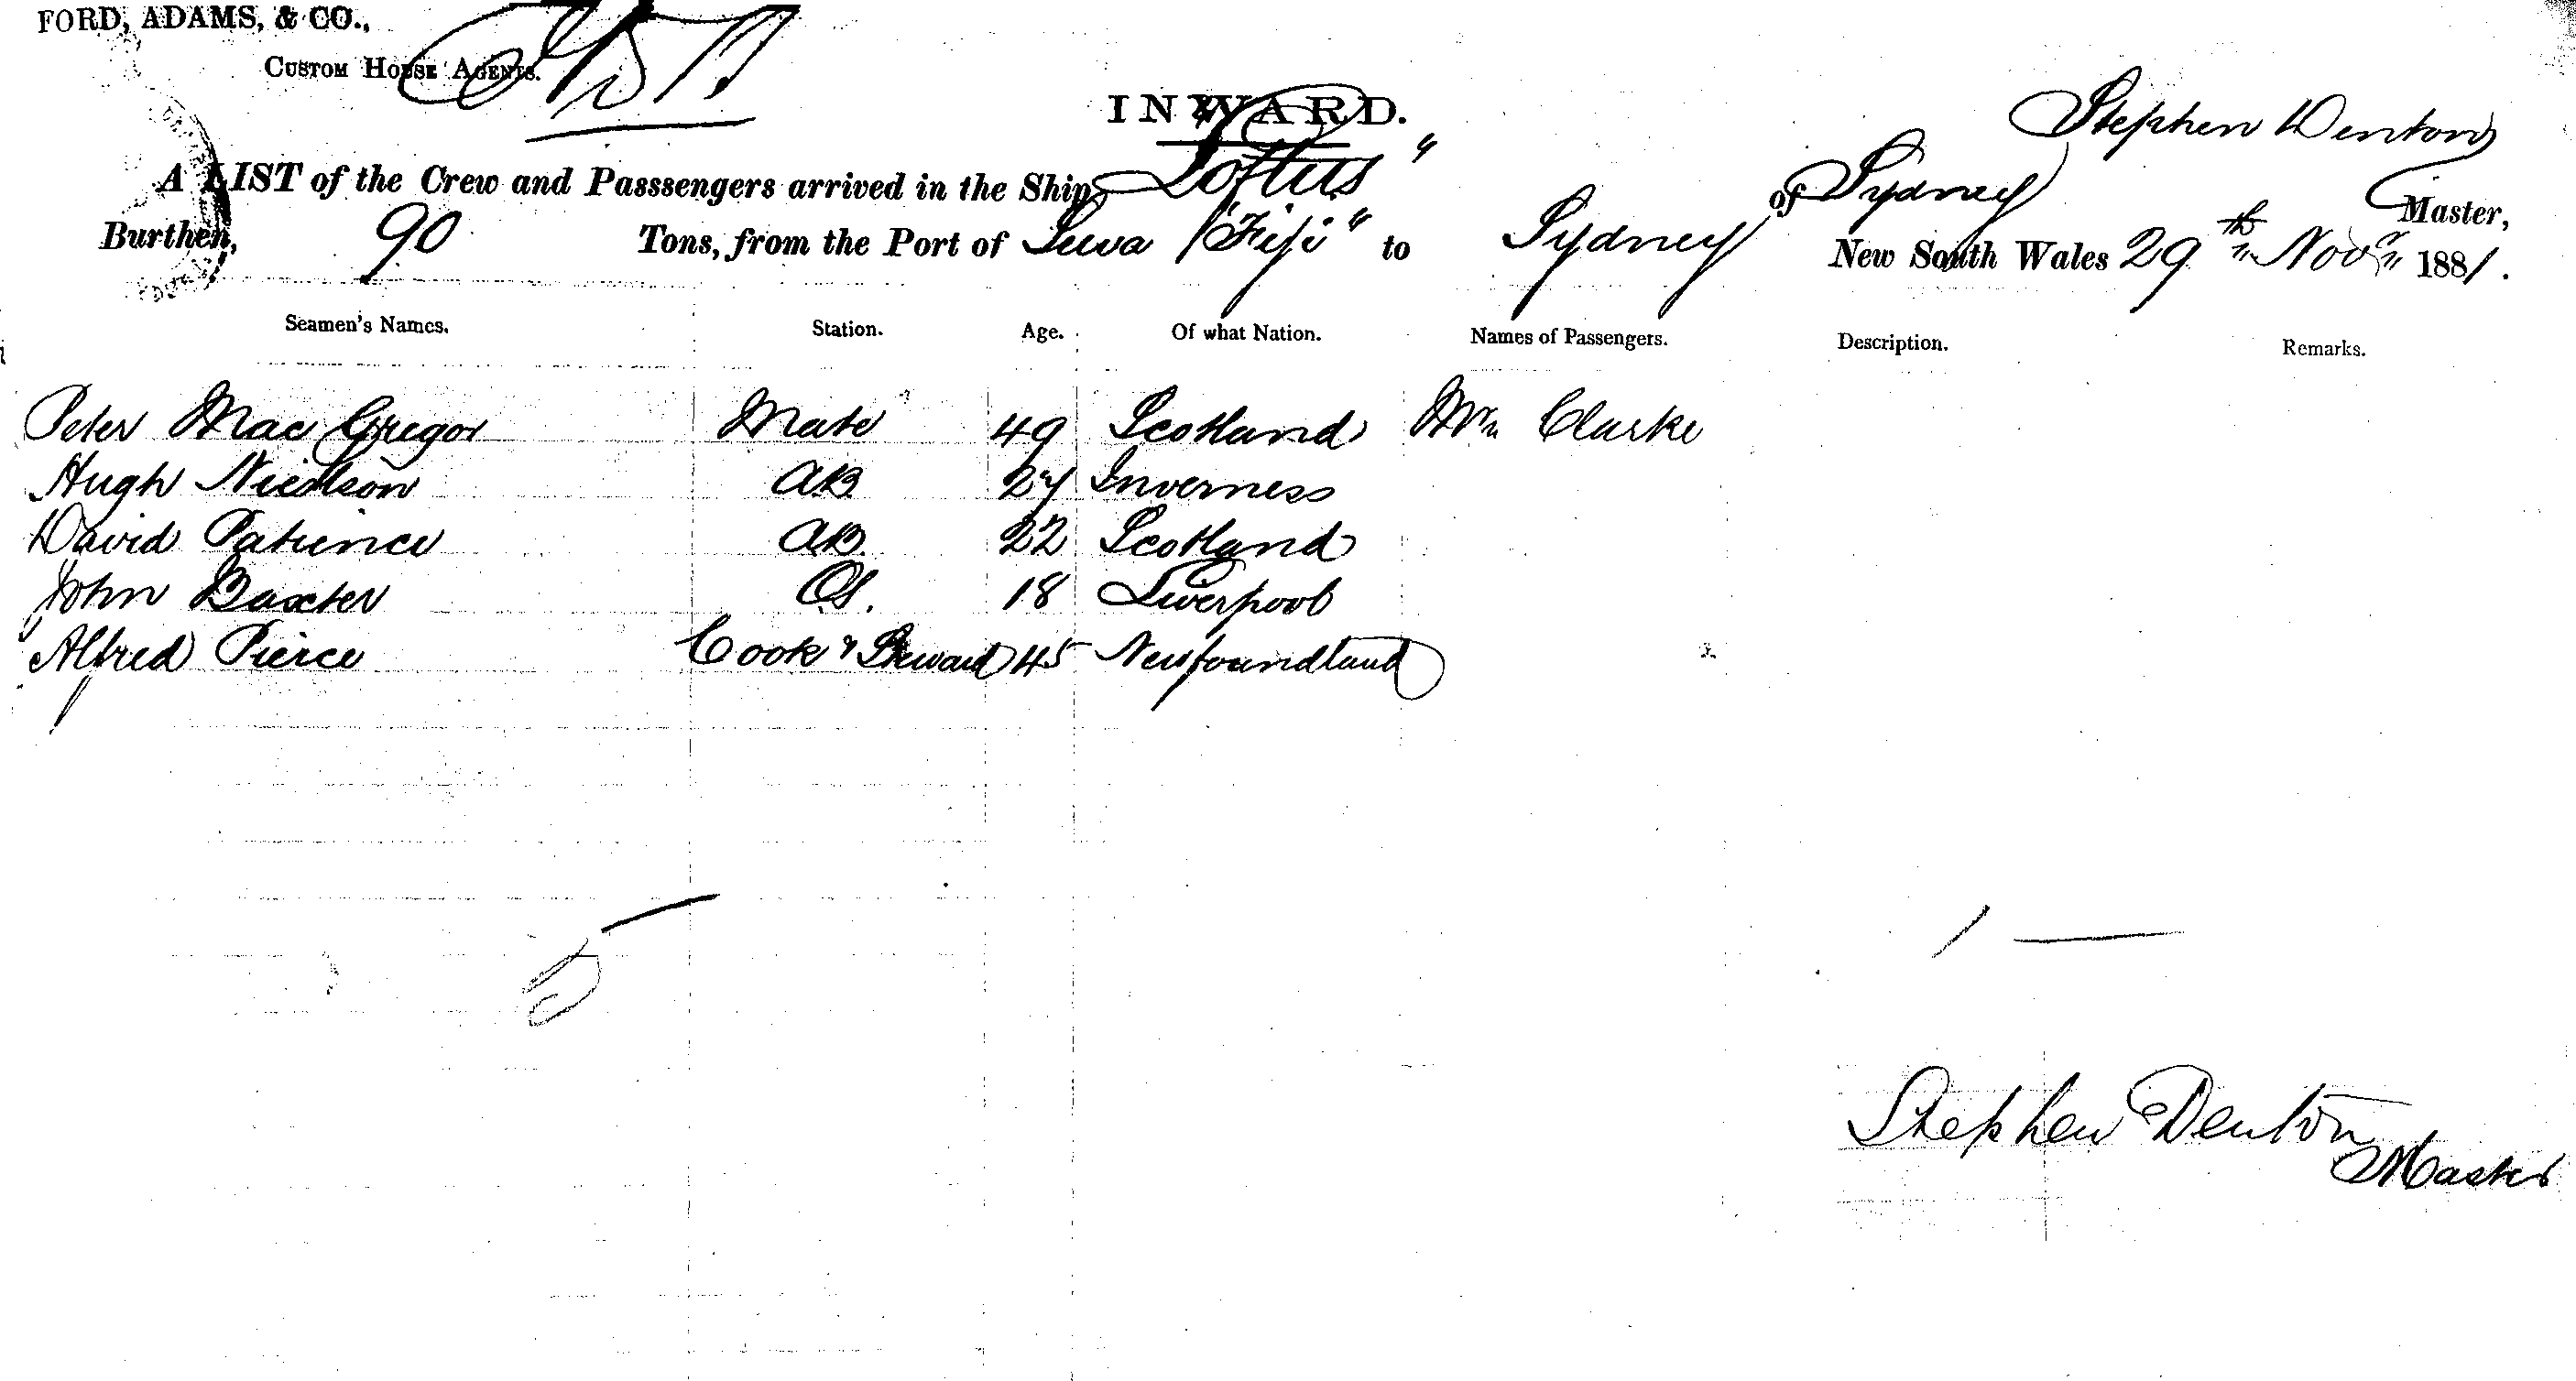 FORD, ADAMS, & CO.,
CUSTOM HOUSE AGENTS.
INWARD.
Stephen Denton
A LIST of the Crew and Passsengers arrived in the Ship "Loftus" of Sydney Master,
Burthen, 90 Tons, from the Port of Suva "Fiji" to Sydney New South Wales 29th Novr 1881.
Seamen's Names. Station. Age. Of what Nation. Names of Passengers. Description. Remarks.
Peter Mac Gregor Mate 49 Scotland Mr Clarke
Hugh AB 27 Inverness
David Patience AB 22 Scotland
John Baxter OS. 18 Liverpool
Alfred Pierce Cook & Steward 45 Newfoundland
5 —
1 —
Stephen Denton
Master